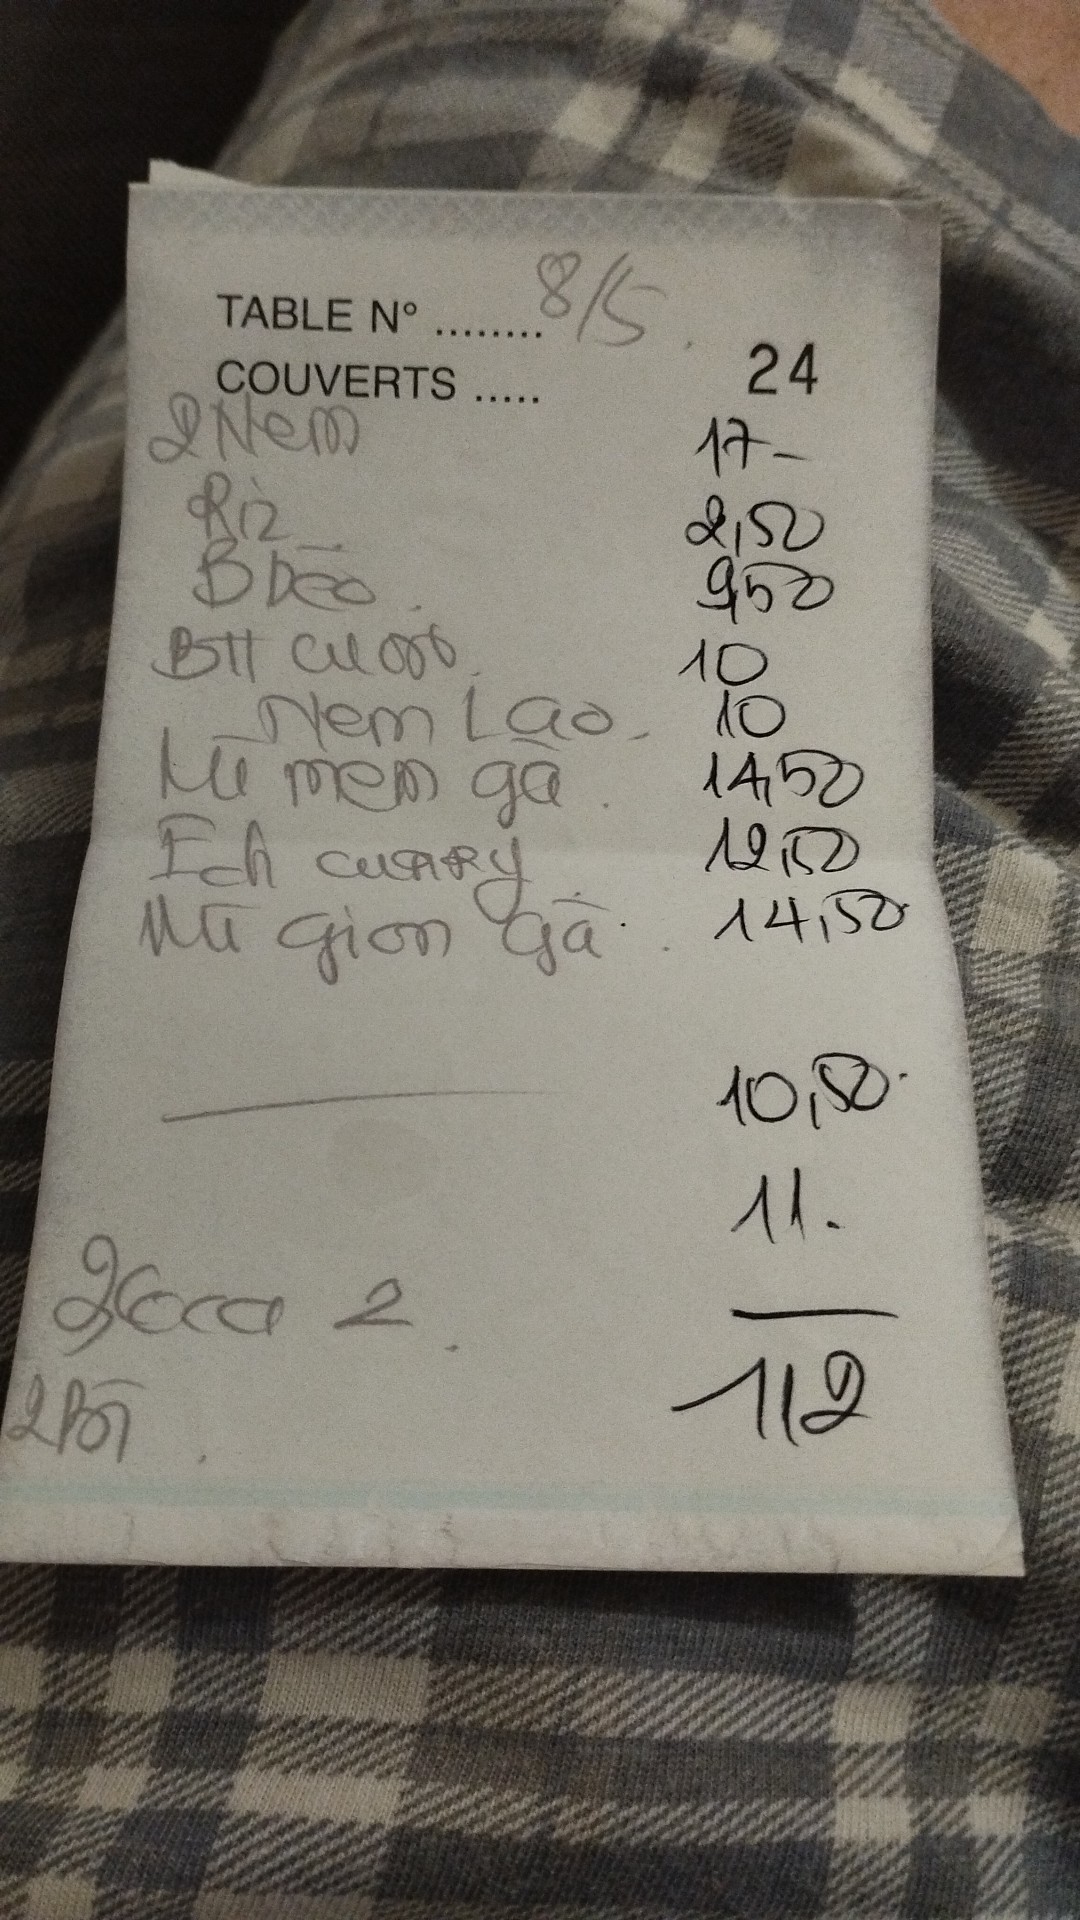 TABLE N° ........ 8/5
COUVERTS ..... 24
2 Nem 17-
Riz 2,50
B bēo 9,50
BH cuốn 10
Nem Lao 10
Mī mem gā 14,50
Ech curry 12,50
Mī gion gā 14,50
10,50
11.
2 Coca 2
112
2